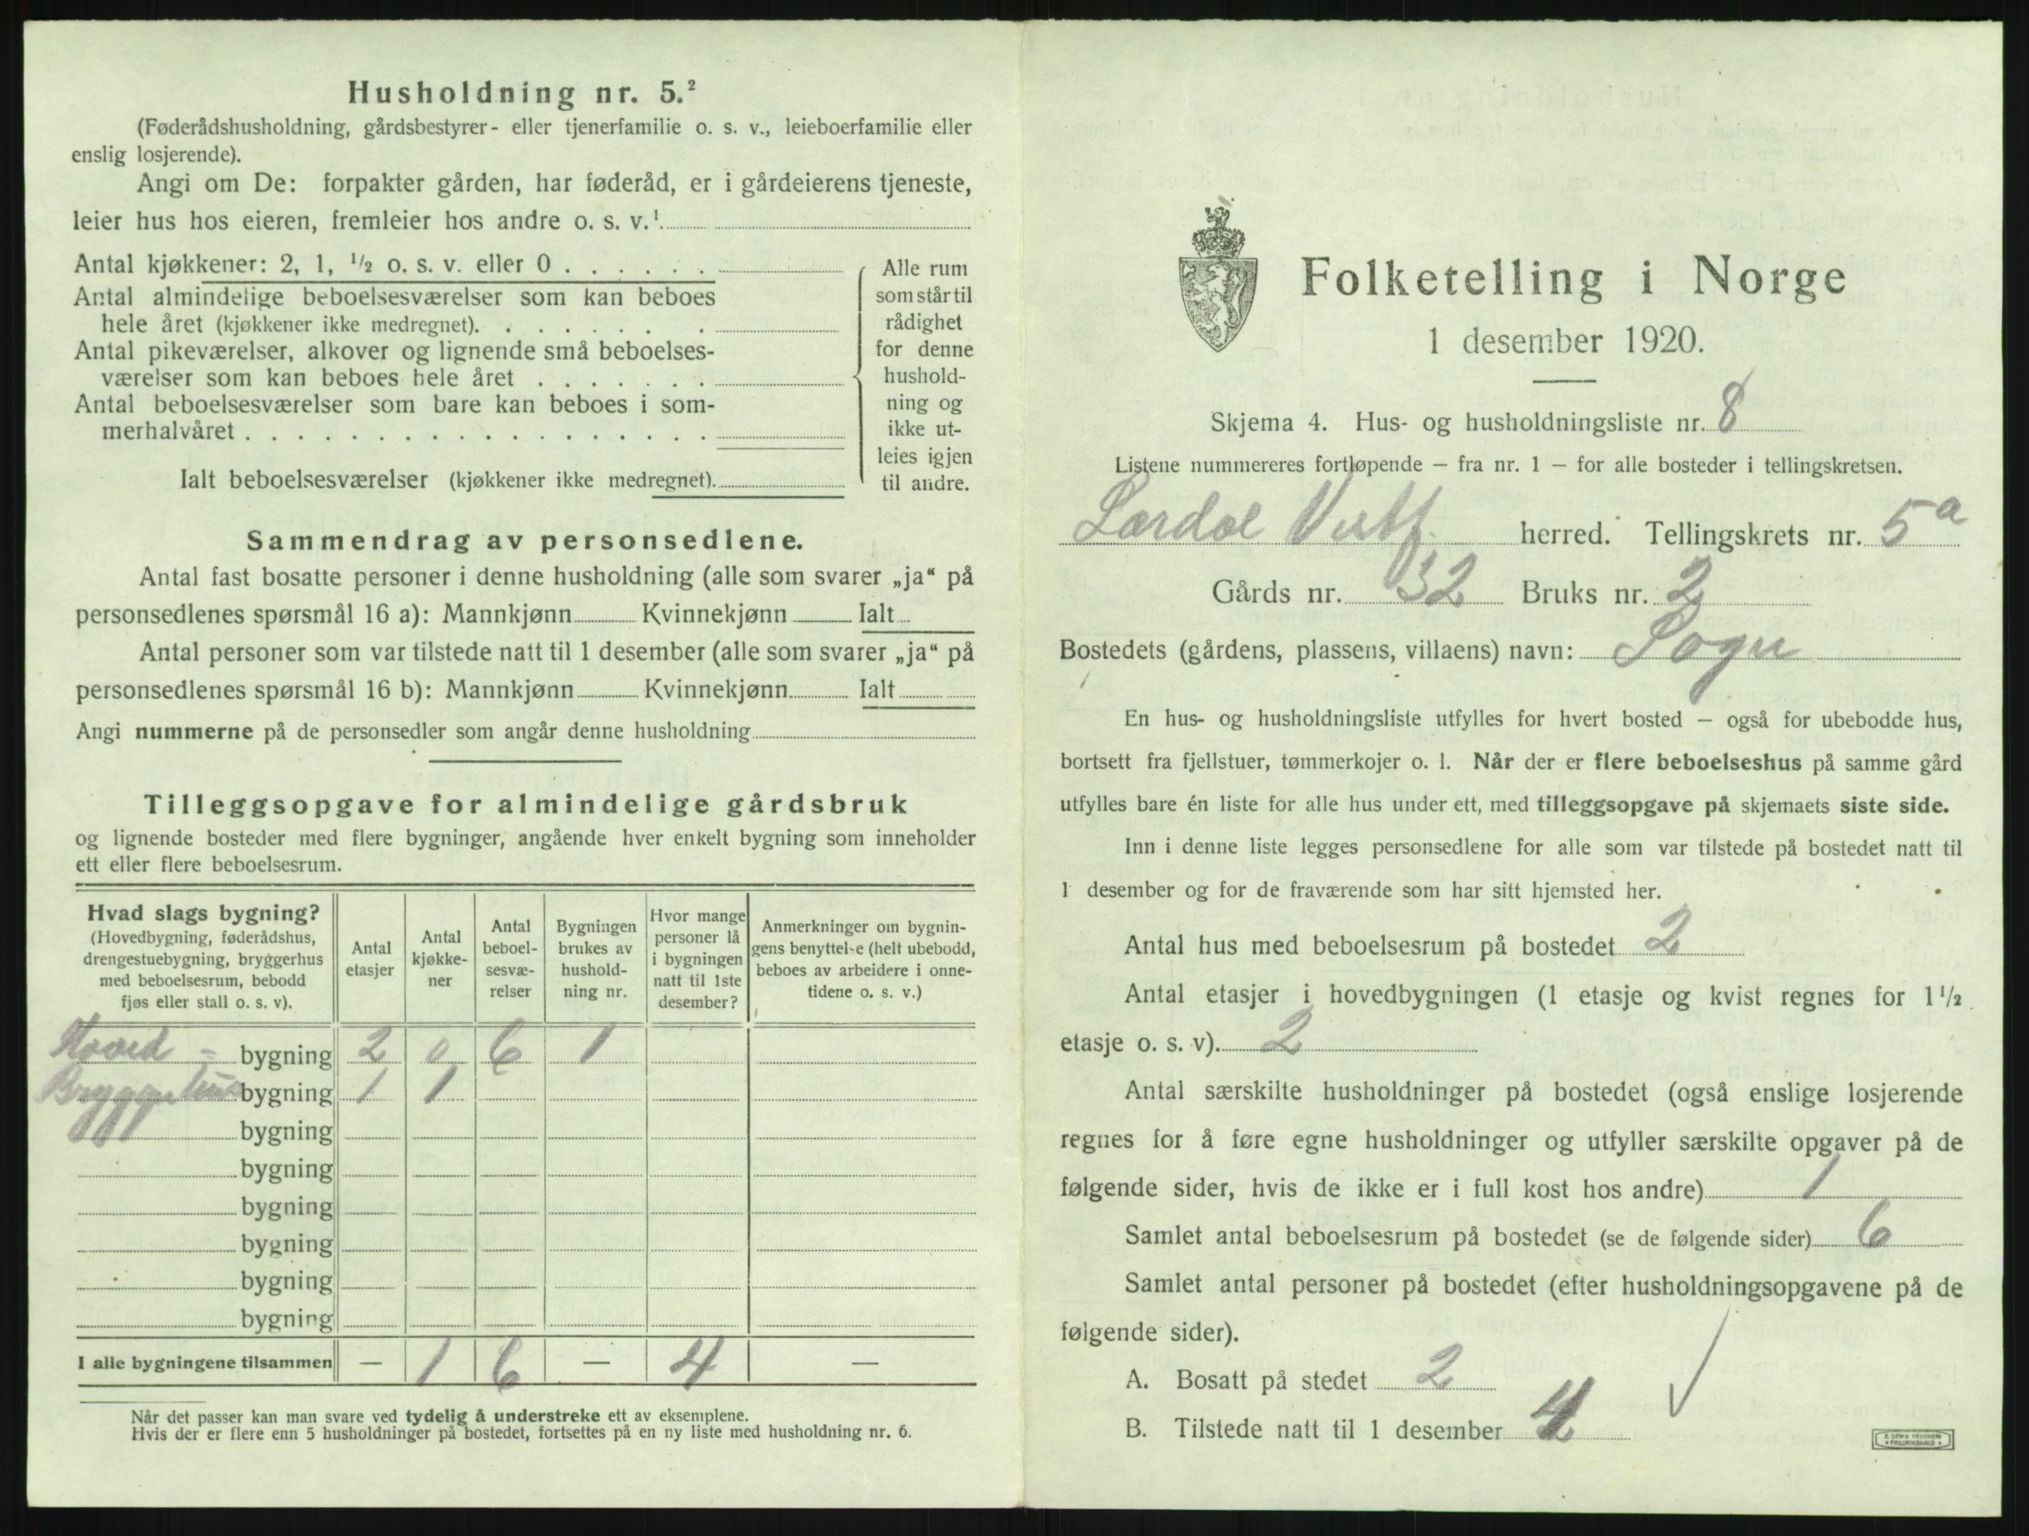 Husholdning nr. 5.²
(Føderådshusholdning, gårdsbestyrer- eller tjenerfamilie o. s. v., leieboerfamilie eller
enslig losjerende).
Angi om De: forpakter gården, har føderåd, er i gårdeierens tjeneste,
leier hus hos eieren, fremleier hos andre o. s. v.¹
Antal kjøkkener: 2, 1, ½ o. s. v. eller 0 . . . . . .
Antal almindelige beboelsesværelser som kan beboes
hele året (kjøkkener ikke medregnet). . . . . . . .
Antal pikeværelser, alkover og lignende små beboelses-
værelser som kan beboes hele året . . . . . . .
Antal beboelsesværelser som bare kan beboes i som-
merhalvåret . . . . . . . . . . . . . . . . . .
Alle rum
som står til
rådighet
for denne
hushold-
ning og
ikke ut-
leies igjen
til andre.
Ialt beboelsesværelser (kjøkkener ikke medregnet).
Sammendrag av personsedlene.
Antal fast bosatte personer i denne husholdning (alle som svarer „ja“ på
personsedlenes spørsmål 16 a): Mannkjønn Kvinnekjønn Ialt
Antal personer som var tilstede natt til 1 desember (alle som svarer „ja“ på
personsedlenes spørsmål 16 b): Mannkjønn Kvinnekjønn Ialt
Angi nummerne på de personsedler som angår denne husholdning
Tilleggsopgave for almindelige gårdsbruk
og lignende bosteder med flere bygninger, angående hver enkelt bygning som inneholder
ett eller flere beboelsesrum.
Hvad slags bygning?
(Hovedbygning, føderådshus,
drengestuebygning, bryggerhus
med beboelsesrum, bebodd
fjøs eller stall o. s. v).
Antal
etasjer
Antal
kjøkke-
ner
Antal
beboel-
sesvæ-
relser
Bygningen
brukes av
hushold-
ning nr.
Hvor mange
personer lå
i bygningen
natt til 1ste
desember?
Anmerkninger om bygnin-
gens benyttelse (helt ubebodd,
beboes av arbeidere i onne-
tidene o. s. v.)
Hoved- bygning 2 0 6 1
Bryggehus bygning 1 1
bygning
bygning
bygning
bygning
bygning
bygning
I alle bygningene tilsammen — 1 6 — 4 —
Når det passer kan man svare ved tydelig å understreke ett av eksemplene.
Hvis der er flere enn 5 husholdninger på bostedet, fortsettes på en ny liste med husholdning nr. 6.
Folketelling i Norge
1 desember 1920.
Skjema 4. Hus- og husholdningsliste nr. 8
Listene nummereres fortløpende — fra nr. 1 — for alle bosteder i tellingskretsen.
Lardal Vestf. herred. Tellingskrets nr. 5a
Gårds nr. 32 Bruks nr. 2
Bostedets (gårdens, plassens, villaens) navn: Sogn
En hus- og husholdningsliste utfylles for hvert bosted — også for ubebodde hus,
bortsett fra fjellstuer, tømmerkojer o. l. Når der er flere beboelseshus på samme gård
utfylles bare én liste for alle hus under ett, med tilleggsopgave på skjemaets siste side.
Inn i denne liste legges personsedlene for alle som var tilstede på bostedet natt til
1 desember og for de fraværende som har sitt hjemsted her.
Antal hus med beboelsesrum på bostedet 2
Antal etasjer i hovedbygningen (1 etasje og kvist regnes for 1½
etasje o. s. v). 2
Antal særskilte husholdninger på bostedet (også enslige losjerende
regnes for å føre egne husholdninger og utfyller særskilte opgaver på de
følgende sider, hvis de ikke er i full kost hos andre) 1
Samlet antal beboelsesrum på bostedet (se de følgende sider) 6
Samlet antal personer på bostedet (efter husholdningsopgavene på de
følgende sider).
A. Bosatt på stedet 2
B. Tilstede natt til 1 desember 4